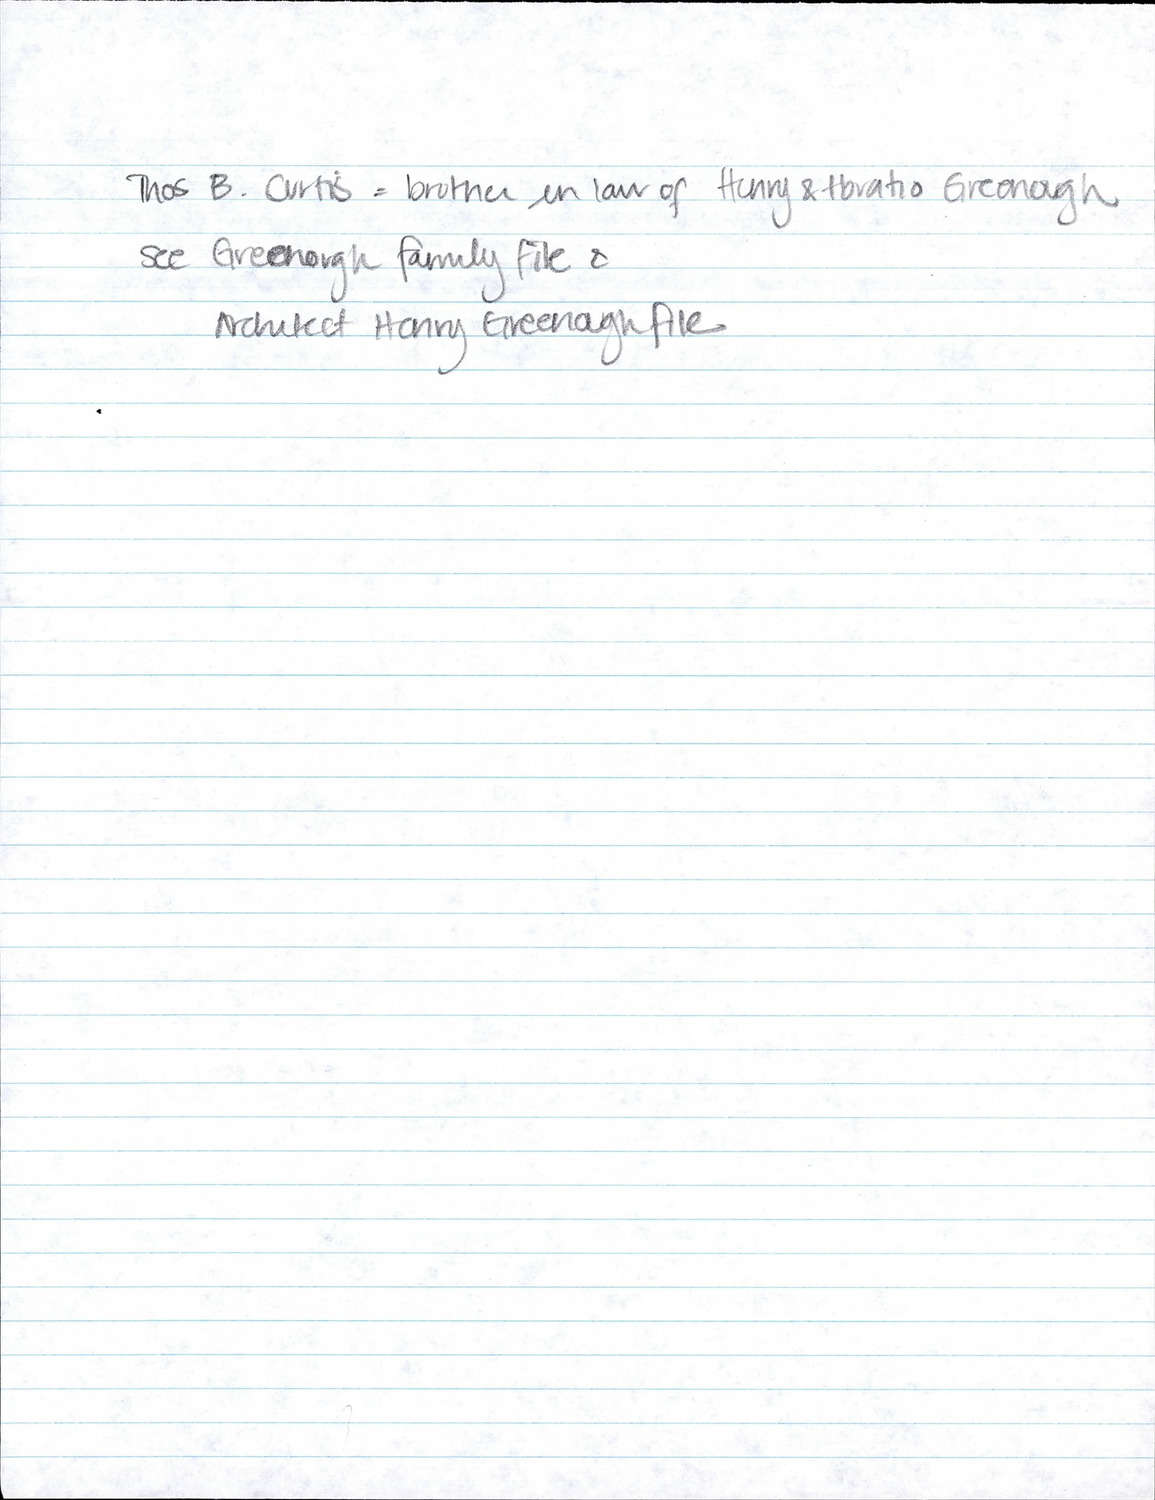 Thos B. Curtis = brother in law of Henry & Horatio Greenough
see Greenough family file &
Architect Henry Greenough file